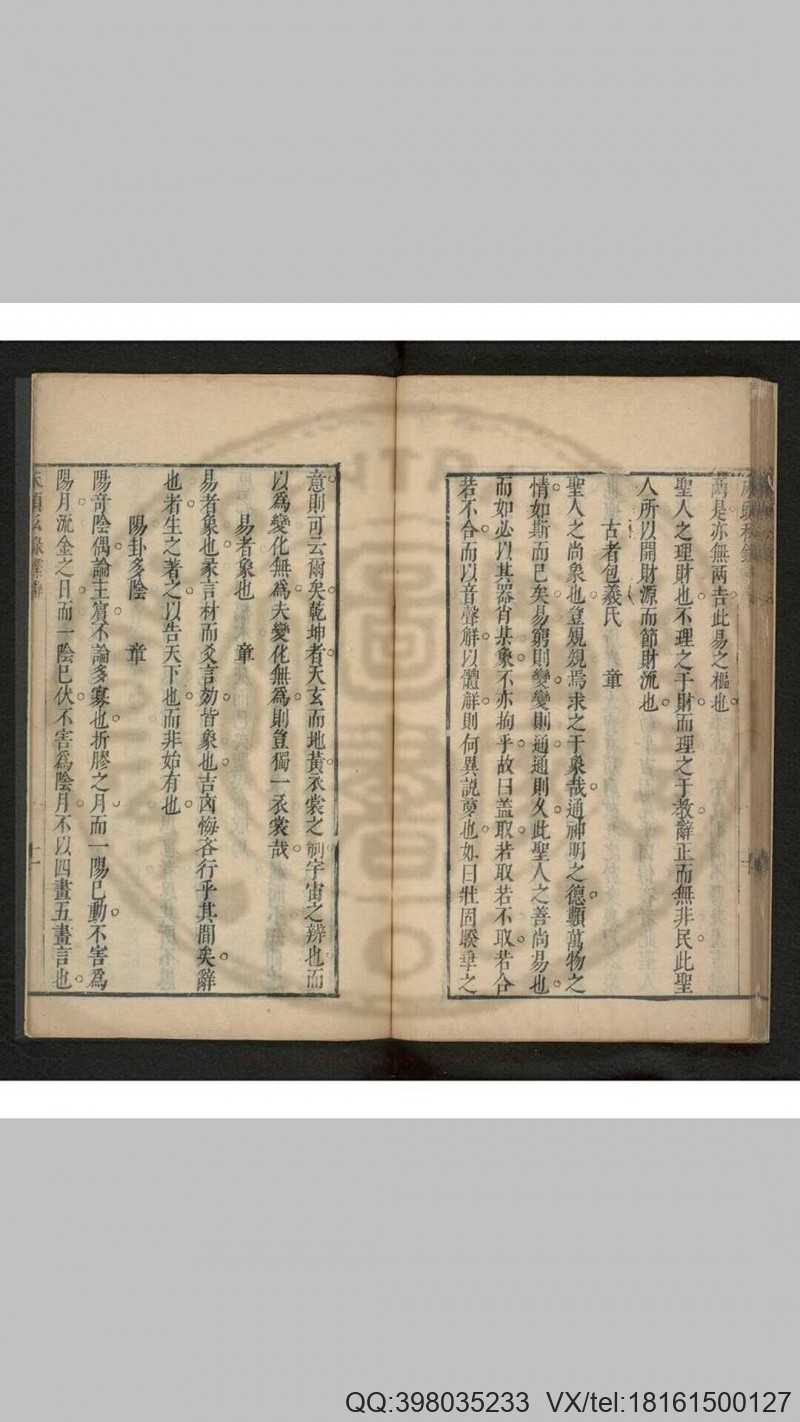 萬是亦無兩吿此易之樞也
聖人之理財也不理之于財而理之于教辭正而無非民此聖
人所以開財源而節財流也
古者包羲氏　章
聖人之尚象也豈規規焉求之于象哉通神明之德類萬物之
情如斯而已矣易窮則變變則通通則久此聖人之善尚易也
而如必以其器肖某象不亦拘乎故曰蓋取若取若不取若合
若不合而以音聲解以體解則何異說夢也如曰壯固睽乖之
意則可云爾矣乾坤者天玄而地黃衣裳之制宇宙之辨也而
以爲變化無爲夫變化無爲則豈獨一衣裳哉
易者象也　章
易者象也彖言材而爻言効皆象也吉凶悔吝行乎其間矣辭
也者生之著之以告天下也而非始有也
陽卦多陰　章
陽奇陰偶論主賓不論多寡也折膠之月而一陽已動不害爲
陽月流金之日而一陰已伏不害爲陰月不以四畫五畫言也
十一
QQ:398035233 VX/tel:18161500127